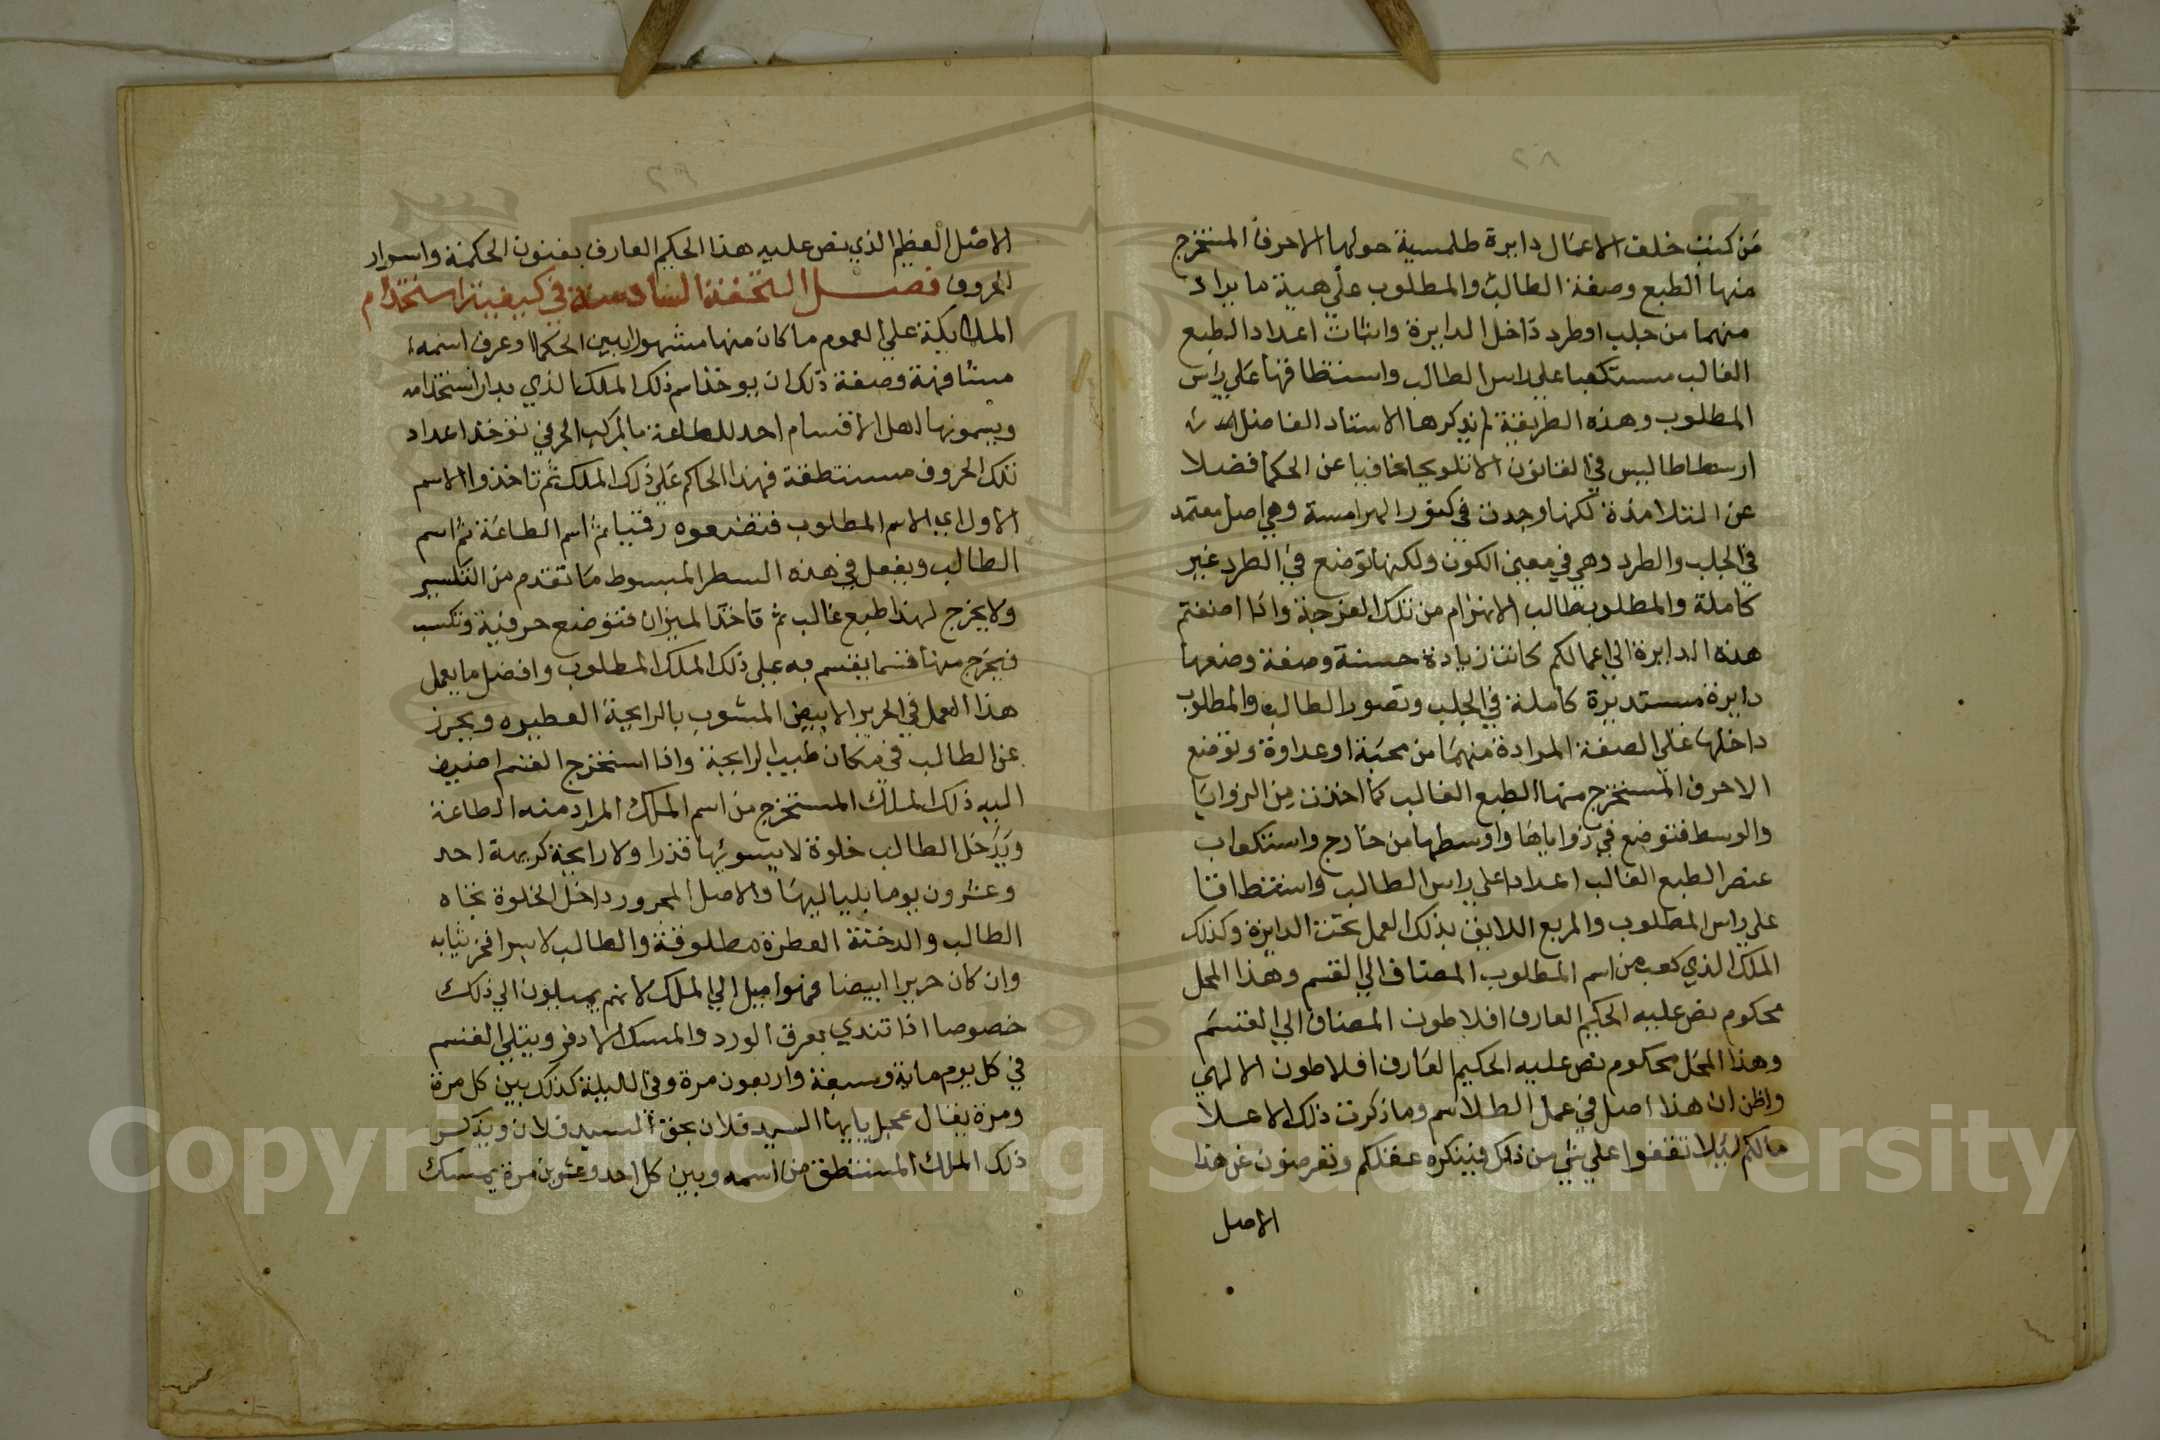 ٢٨
من كنت خلف الاعمال دايرة طلمسية حولها الاحرف المستخرج
منها الطبع وصفة الطالب والمطلوب علي هية ما يراد
منهما من جلب او طرد داخل الدايرة واثبات اعداد الطبع
الغالب مستكعبا علي راس الطالب واستنطاقها علي راس
المطلوب وهذه الطريقة لم يذكرها الاستاد الفاضل
ارسطاطاليس في القانون خافيا عن الحكما فضلا
عن التلامذة لكنها وجدت في كنوز الهرامسة وهي اصل معتمد
في الجلب والطرد وهي في معني الكون ولكنها توضع في الطرد غير
كاملة والمطلوب طالب الانهزام من تلك الفرجة واذا اضفتم
هذه الدايرة الي اعمالكم كانت زيادة حسنة وصفة وضعها
دايرة مستديرة كاملة في الجلب وتصور الطالب والمطلوب
داخلها علي الصفة المرادة منهما من محبة او عداوة وتوضع
الاحرف المستخرج منها الطبع الغالب كما اخذت من الزوايا
والوسط فتوضع في زواياها واوسطها من خارج واستكعاب
عنصر الطبع الغالب اعدادا علي راس الطالب واستنطاقا
علي راس المطلوب والمربع اللايق بذلك العمل تحت الدايرة وكذلك
الملك الذي كعب من اسم المطلوب المضاف الي القسم وهذا المحل
محكوم نص عليه الحكيم العارف افلاطون المضاف الي القسم
وهذا المحل محكوم نص عليه الحكيم العارف افلاطون الالهي
واظن ان هذا اصل في عمل الطلاسم وما ذكرت ذلك الا علا
مالكم ليلا تقفوا علي شي من ذلك فينكره عقلكم وتعرضون عن هذا
الاصل
٢٩
الاصل العظيم الذي نص عليه هذا الحكيم العارف بفنون الحكمة واسرار
الحروف فصل التحفة السادسة في كيفية استخدام
الملايكة علي العموم ما كان منها مشهورا بين الحكما وعرف اسمه
مشافهة وصفة ذلك ان يوخذ اسم ذلك الملك الذي يراد استخدامه
ويسمونها اهل الاقسام احد للطاعة بالمركب الحرفي توخذ اعداد
تلك الحروف مستنطقة فهذا الحاكم علي ذلك الملك ثم تاخذوا الاسم
الاول اي الاسم المطلوب فتضعوه رقيا ثم اسم الطاعة ثم اسم
الطالب ويفعل في هذه السطر المبسوط ما تقدم من التكسير
ولا يخرج لهذا طبع غالب ثم تاخذ الميزان فتوضع حرفية وتكسب
فيخرج منها قسما يقسم به علي ذلك الملك المطلوب وافضل ما يعمل
هذا العمل في الحرير الابيض المشوب بالرايحة العطيره ويحرز
عن الطالب في مكان طيب الرايحة واذا استخرج القسم اضيف
اليه ذلك الملك المستخرج من اسم الملك المراد منه الطاعة
ويدخل الطالب خلوة لا يسوئها قذرا ولا رايحة كريهة احد
وعشرون يوما بلياليها والاصل المحرور داخل الخلوة تجاه
الطالب والدخنة العطرة مطلوقة والطالب لابسا فخر ثيابه
وان كان حريرا ابيضا فهوا ميل الي الملك لانهم يميلون الي ذلك
خصوصا اذا تندي بعرق الورد والمسك الادفر ويتلي القسم
في كل يوم ماية وسبعة واربعون مرة وفي الليلة كذلك بين كل مرة
ومرة يقال عجل يا ايها السيد فلان بحق السيد فلان ويذكر
ذلك الملك المستنطق من اسمه وبين كل احد وعشرين مرة يمسك
Copyright © King Saud University